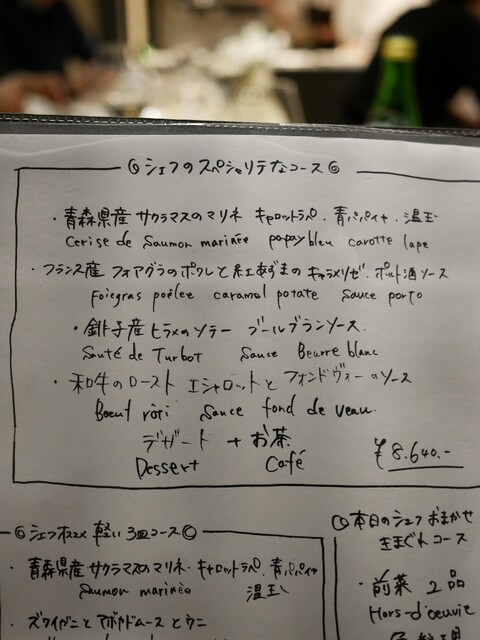 シェフのスペシャリテなコース
・青森県産サクラマスのマリネ キャロットラペ、青パパイヤ、温玉
Cerise de Saumon marinée papay bleu carotte lape
・フランス産 フォアグラのポワレと紅あずまのキャラメリゼ、ポルト酒ソース
Foiegras poêlee caramel potate Sauce porto
・銚子産ヒラメのソテー ブールブランソース、
Sauté de Turbot Sauce Beurre blanc
・和牛のロースト エシャロットとフォンドヴォーのソース
Boeuf rôti Sauce fond de veau.
デザート + お茶
Dessert Café
¥8.640.-
シェフオススメ 軽い3皿コース
・青森県産サクラマスのマリネ・キャロットラペ、青パパイヤ
Saumon marinéa 温玉
・ズワイガニとアボカドムースとウニ
本日のシェフおまかせ
生まぐれコース
・前菜 2品
Hors-d'oeuvre